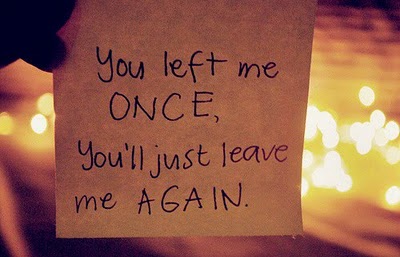 You left me
ONCE,
You'll just leave
me AGAIN.